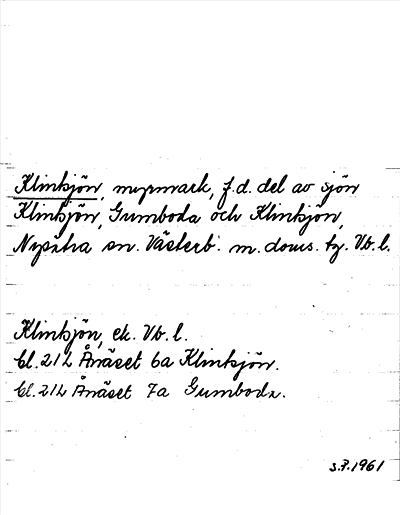 Klinksjön, myrmark, f.d. del av sjön
Klinksjön, Gumboda och Klinksjön,
Nysätra sn. Västerb. m. doms. tg. Vb. l.
Klinksjön, ek. Vb. l.
bl. 21L Ånäset 6a Klinksjön.
bl. 21L Ånäset 7a Gumboda.
1961